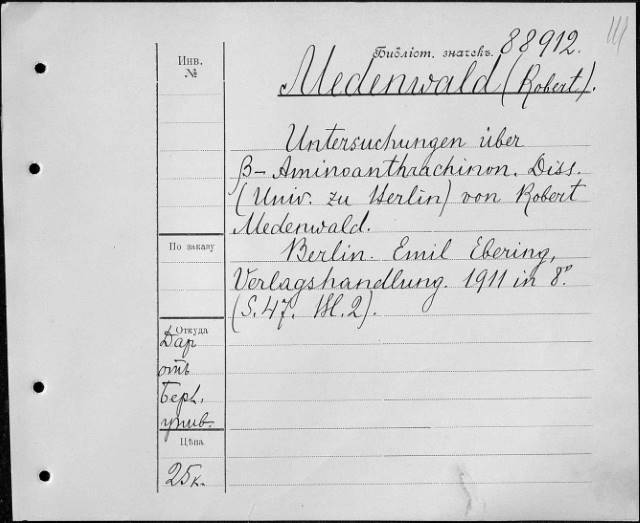 Библіот. значекъ. 88912.
Инв.
№
Medenwald (Robert).
Untersuchungen über
β-Aminoanthrachinon. Diss.
(Univ. zu Berlin) von Robert
Medenwald.
По заказу
Berlin. Emil Ebering,
Verlagshandlung. 1911 in 8°.
(S. 47. Bl. 2).
Откуда
Даръ
отъ
Берл.
унив.
Цѣна
25 к.